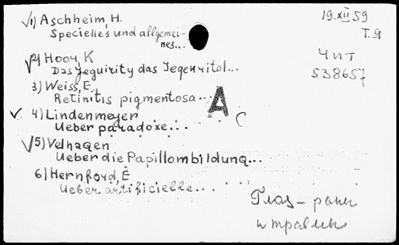 √1) Aschheim, H.
Specielles und allgemei-
nes...
19.XII 59
T.Я
√2) Hoor, K
Das Jequirity das Jequiritol...
ЧиТ
538657
3) Weiss, E.
Retinitis pigmentosa...
A
√ 4) Lindenmeyer
Ueber paradoxe...
√5) Velhagen
Ueber die Papillombildung...
6) Hernford, E
Ueber artificielle...
Глаз – раны
и травмы